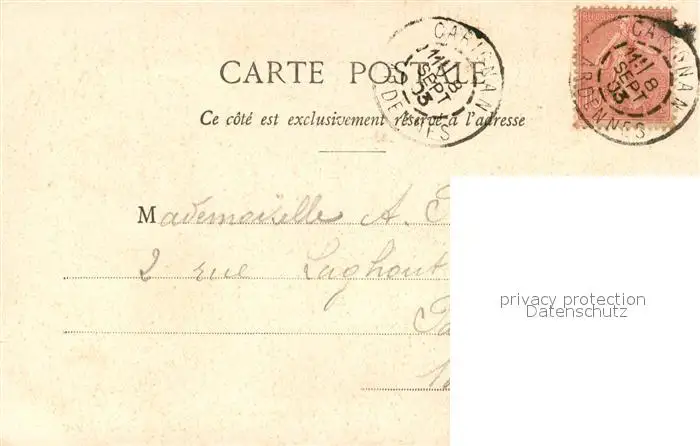 CARIGNAN
11 8
SEPT
03
ARDENNES
CARIGNAN
11 8
SEPT
03
ARDENNES
CARTE POSTALE
Ce côté est exclusivement réservé à l'adresse
Mademoiselle A.
2 rue Laghouat
privacy protection
Datenschutz